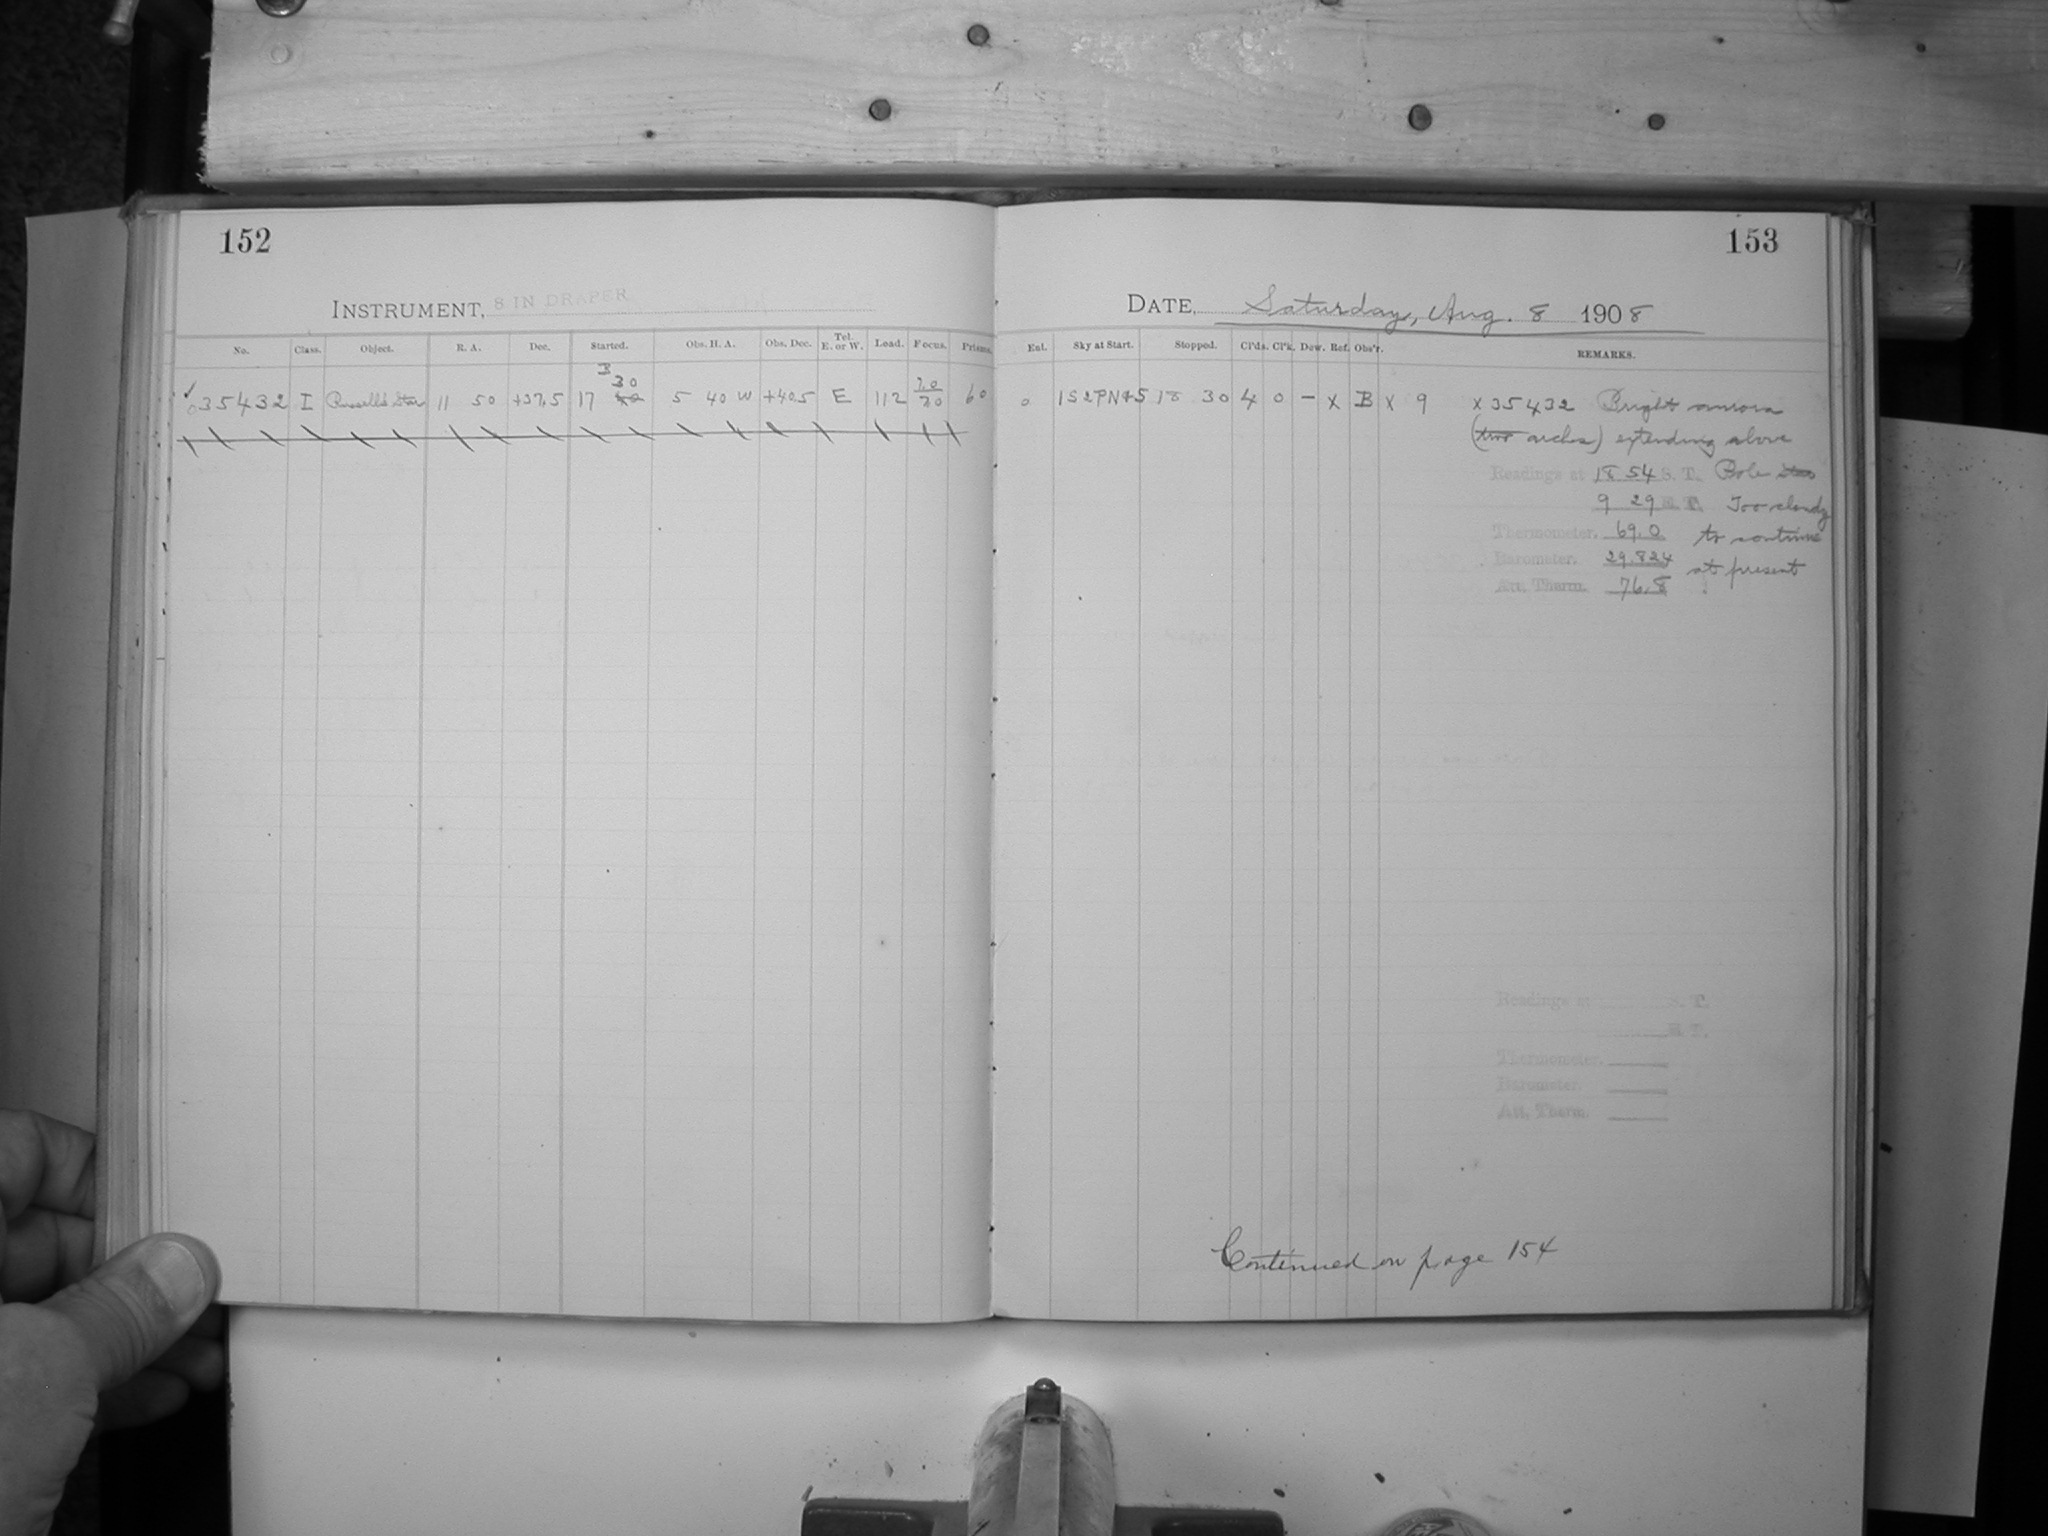 152
INSTRUMENT, 8 IN DRAPER
No. Class. Object. R. A. Dec. Started. Obs. H. A. Obs. Dec. Tel. E. or W. Load. Focus. Prisms.
35432 I Russell's Star 11 50 +37.5 17 30 5 40 W +40.5 E 112 7.0 7.0 60
153
DATE, Saturday, Aug. 8 1908
Ent. Sky at Start. Stopped. Cl'ds. Cl'k. Dew. Ref. Obs'r. REMARKS.
0 18 30 4 0 – x B x 9 x 35432 Bright aurora
(two arches) extending above
Readings at 18 54 S. T. Pole
9 29 E. T. Too cloudy
Thermometer. 69.0 to continue
Barometer. 29.824 at present
Att. Therm. 76.8
Readings at S. T.
E. T.
Thermometer.
Barometer.
Att. Therm.
Continued on page 154